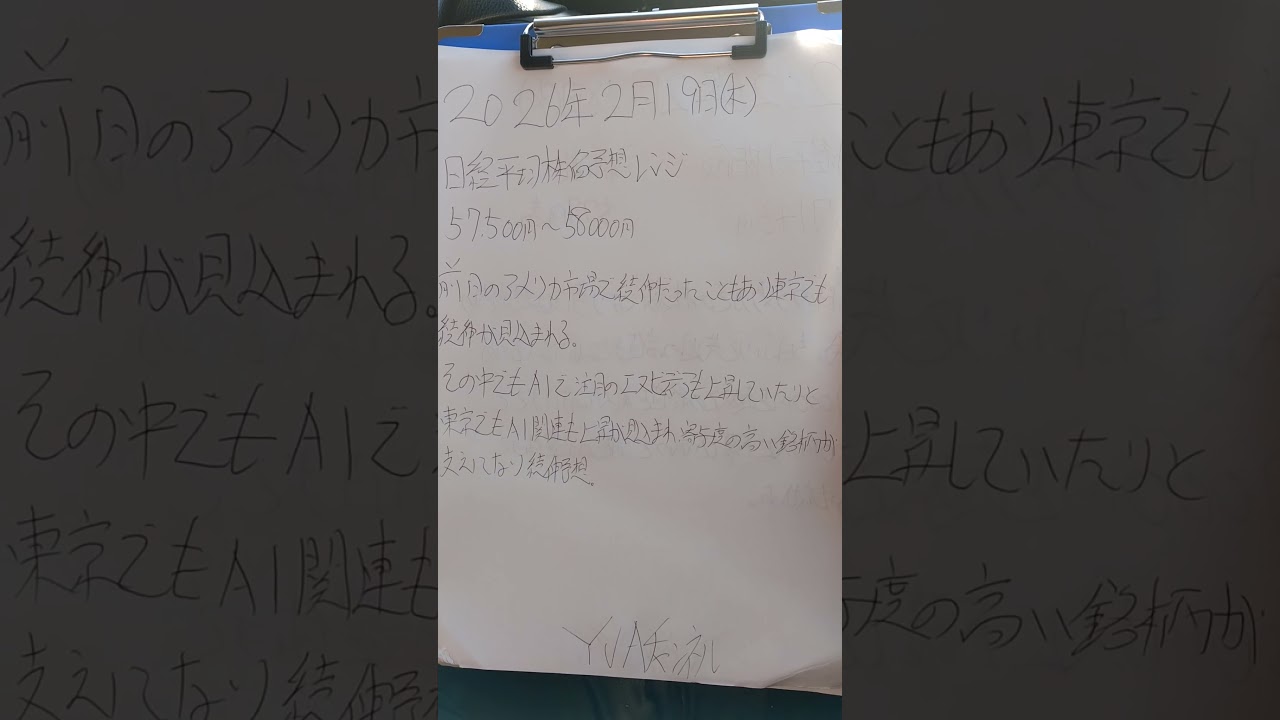 2026年2月19日(木)
日経平均株価予想レンジ
57500円〜58000円
前日のアメリカ市場で続伸だったこともあり東京でも
続伸が見込まれる。
その中でもAIで注目のエヌビディアも上昇していたりと
東京でもAI関連も上昇が見込まれ寄与度の高い銘柄が
支えてなり続伸予想。
YJAチャンネル